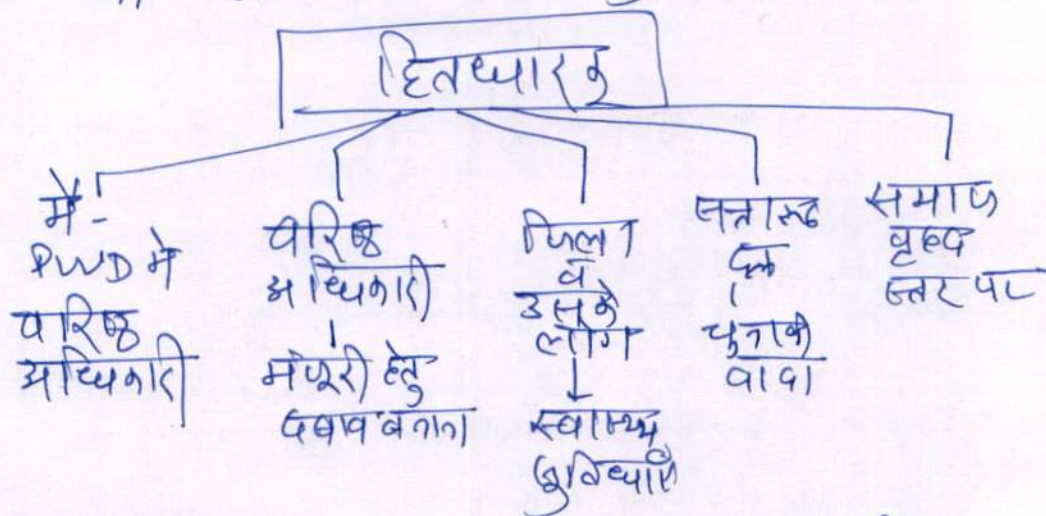 हितधारक
मैं -
PWD में
वरिष्ठ
अधिकारी
वरिष्ठ
अधिकारी
मंजूरी हेतु
दबाव बनाना
जिला
व
उसके
लोग
स्वास्थ्य
सुविधाएँ
सत्तारूढ
दल
चुनावी
वादा
समाज
वृहद
स्तर पर